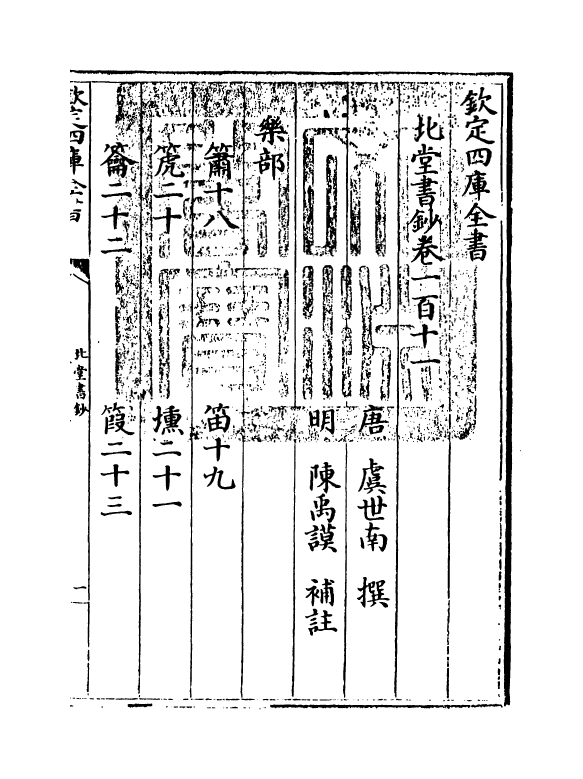 欽定四庫全書
北堂書鈔卷一百十一
唐 虞世南 撰
明 陳禹謨 補註
樂部
簫十八 笛十九
篪二十 壎二十一
籥二十二 葭二十三
欽定四庫全書
北堂書鈔
一